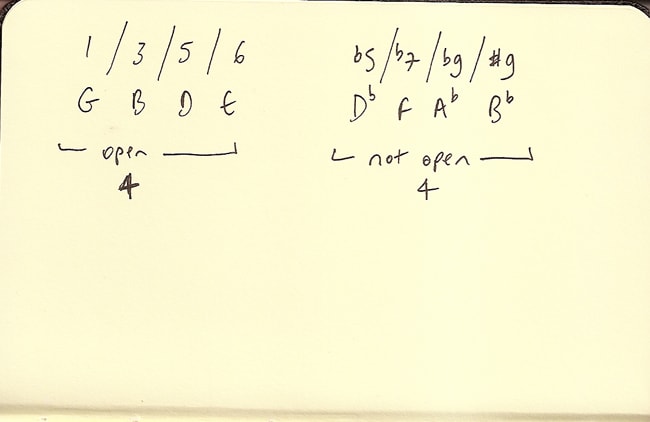 1 / 3 / 5 / 6 b5 / b7 / b9 / #9
G B D E Db F Ab Bb
open not open
4 4